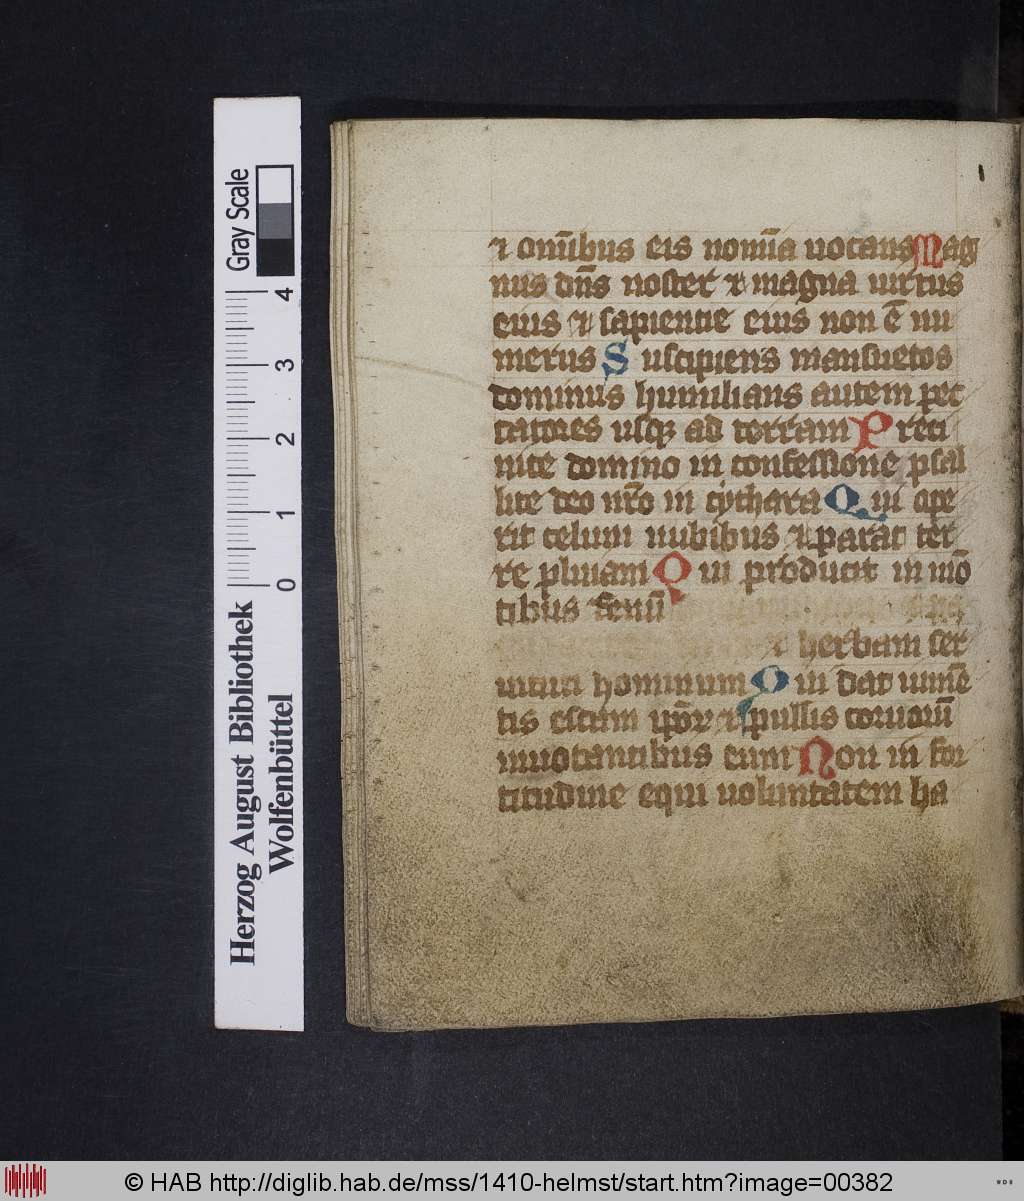 ⁊ om̄ibus eis nomīa uocans Mag
nus dn̄s noster ⁊ magna uirtus
eius ⁊ sapientie eius non ē nu
merus Suscipiens mansuetos
dominus humilians autem pec
catores usqꝫ ad terram Preci
nite domino in confessione psal
lite deo nr̄o in cythara Qui ope
rit celum nubibus ⁊ parat ter
re pluuiam Qui producit in mō
tibus fenū
⁊ herbam ser
uituti hominum Qui dat iumē
tis escam ⁊ pullis coruorū
inuocantibus eum Non in for
titudine equi uoluntatem ha
Gray Scale
4
3
2
1
0
Herzog August Bibliothek
Wolfenbüttel
© HAB http://diglib.hab.de/mss/1410-helmst/start.htm?image=00382